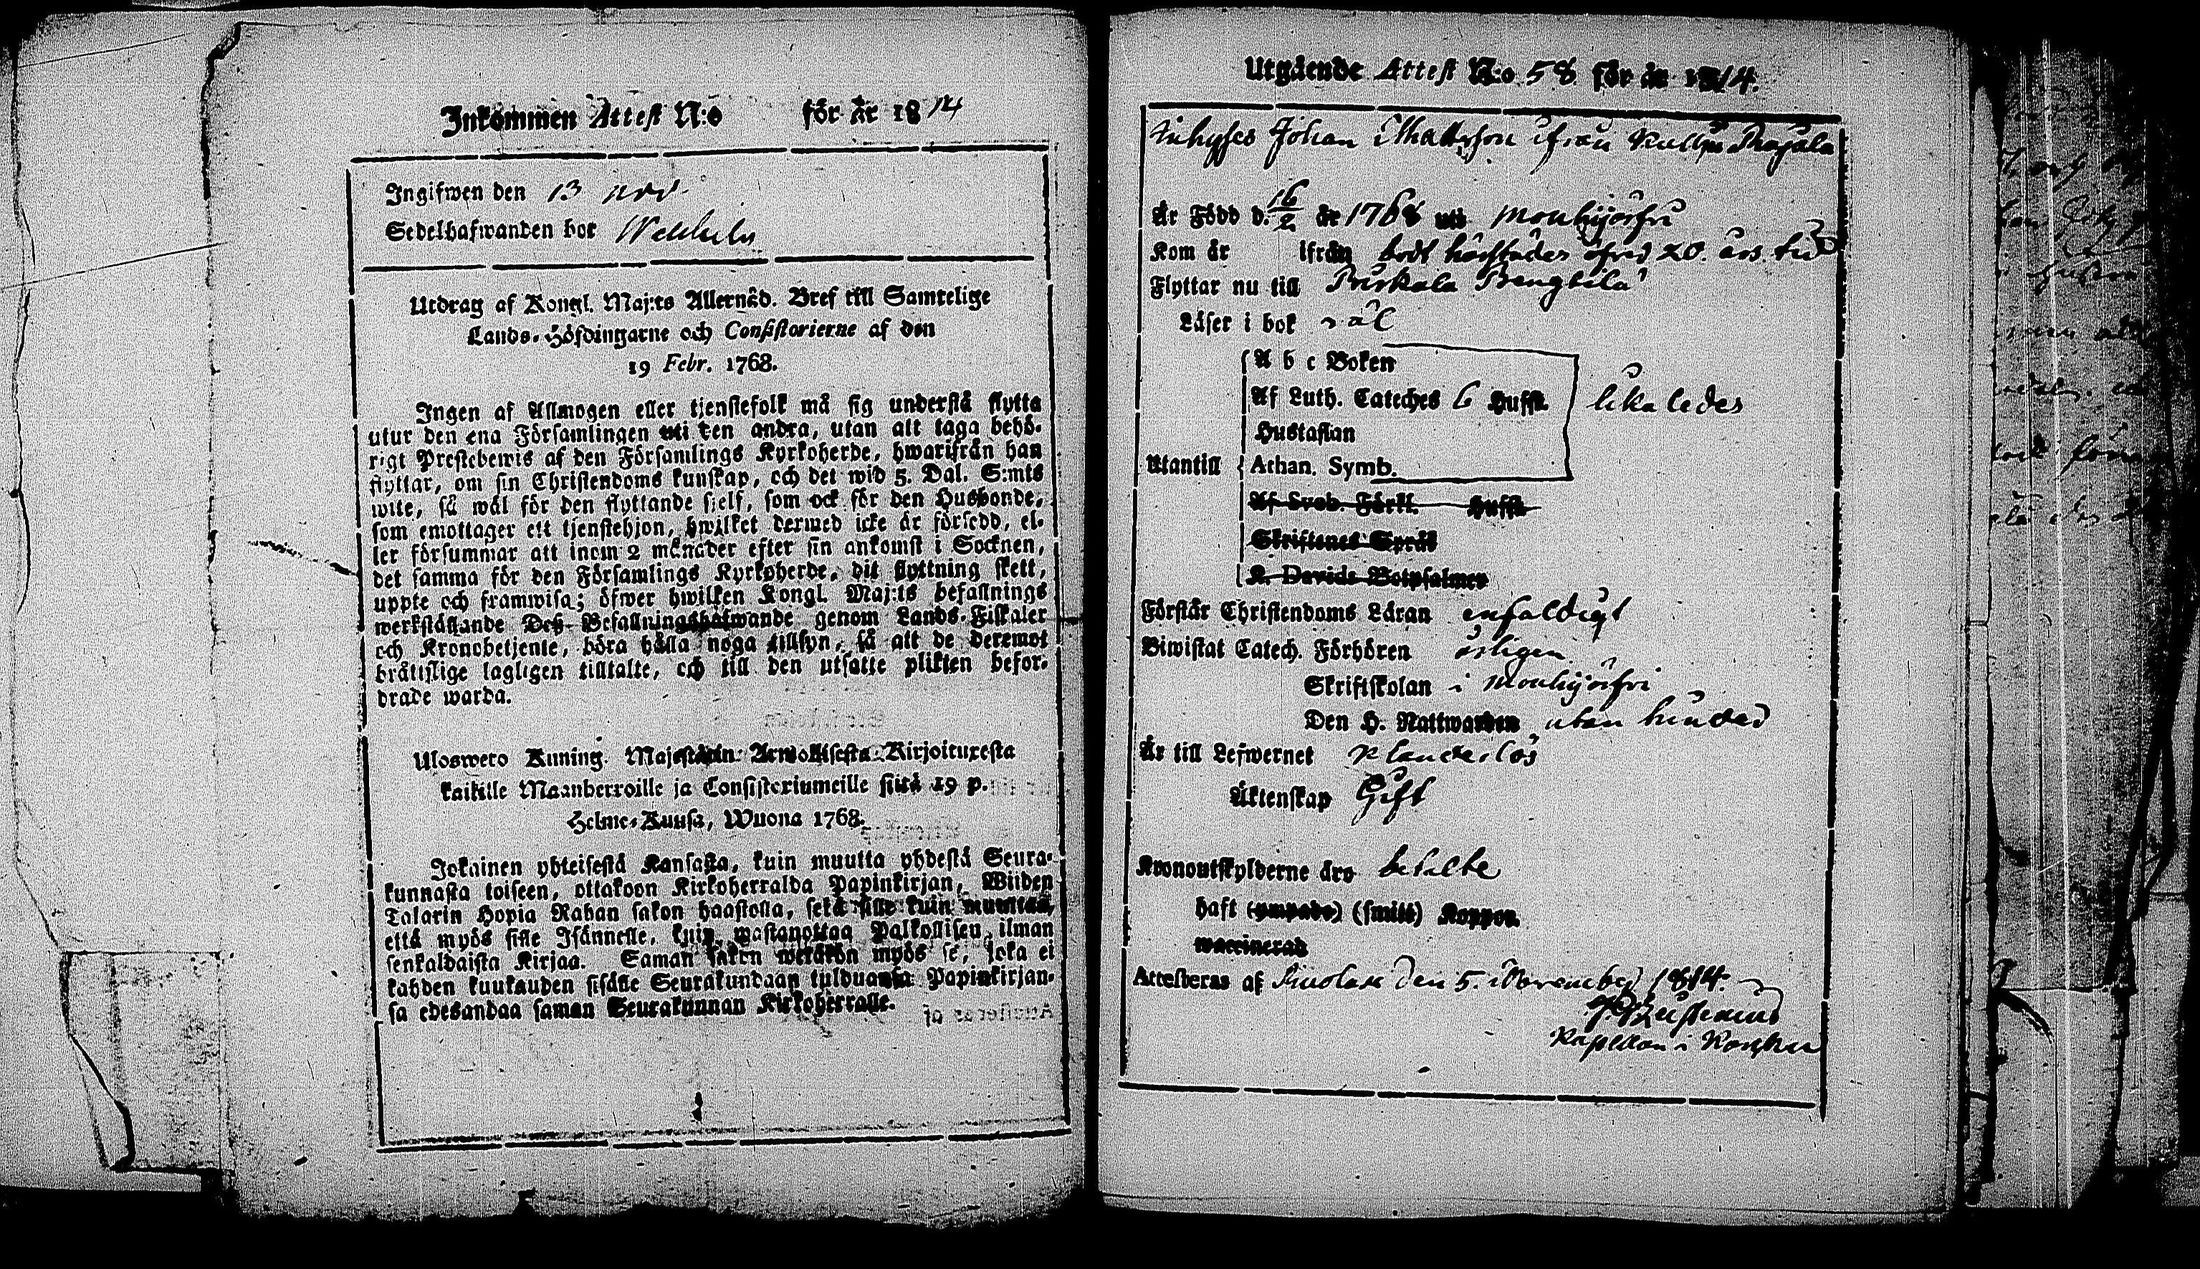 Inkommen Attest N:o för år 1814
Ingifwen den 13 nov.
Sedelhafwanden bor
Utdrag af Kongl. Maj:ts Allernåd. Bref till Samtelige
Lands-Höfdingarne och Consistorierne af den
19 Febr. 1768.
Ingen af Allmogen eller tjenstefolk må sig understå flytta
utur den ena Församlingen uti den andra, utan att taga behö-
rigt Prestebewis af den Församlings Kyrkoherde, hwarifrån han
flyttar, om sin Christendoms kunskap, och det wid 5. Dal. S:mts
wite, så wäl för den flyttande sjelf, som ock för den Husbonde,
som emottager ett tjenstehjon, hwilket dermed icke är försedd, el-
ler försummar att inom 2 månader efter sin ankomst i Socknen,
det samma för den Församlings Kyrkoherde, dit flyttning skett,
uppte och framwisa; öfwer hwilken Kongl. Maj:ts befallnings
werkställande Deß Befallningshafwande genom Lands-Fiskaler
och Kronobetjente, böra hålla noga tillsyn, så att de deremot
bråttslige lagligen tilltalte, och till den utsatte plikten befor-
drade warda.
Uloswero Kuning. Majestätin Armollisesta Kirjoituxesta
kaikille Maanherroille ja Consistoriumeille siitä 19 p.
Helme-Kuusa, Wuona 1768.
Jokainen yhteisestä Kansasta, kuin muutta yhdestä Seura-
kunnasta toiseen, ottakoon Kirkoherralda Papinkirjan, Wiiden
Talarin Hopia Rahan sakon haastolla, sekä sille kuin muuttaa,
että myös sille Isännelle, kuin wastanottaa Palkollisen ilman
senkaldaista Kirjaa. Saman sakon wetäkön myös se, joka ei
kahden kuukauden sisälle Seurakundaan tulduansa Papinkirjan-
sa edesandaa saman Seurakunnan Kirkoherralle.
Utgående Attest N:o 58 för år 1814.
Inhyses Johan Mattsson ifrån
Är Född d. 16/2 år 1768 uti Mouhijärfvi
Kom år ifrån bodt härstädes öfver 20 års tid
Flyttar nu till Puskala Bengtilä
Läser i bok väl
A b c Boken
Af Luth. Cateches 6 Hufst. likaledes
Hustaflan
Utantill Athan. Symb.
Af Sveb. Förkl. Hufst.
Skriftenes Språk
K. Davids Botpsalmer
Förstår Christendoms Läran enfaldigt
Biwistat Catech. Förhören årligen
Skriftskolan i Mouhijärfvi
Den H. Nattwarden utan hinder
Är till Lefwernet klanderlös
Äktenskap Gift
Kronoutskylderne äro betalte
haft (ympade) (smitt) Koppor
waccinerad
Attesteras af den 5. November 1814.
Kapellan i